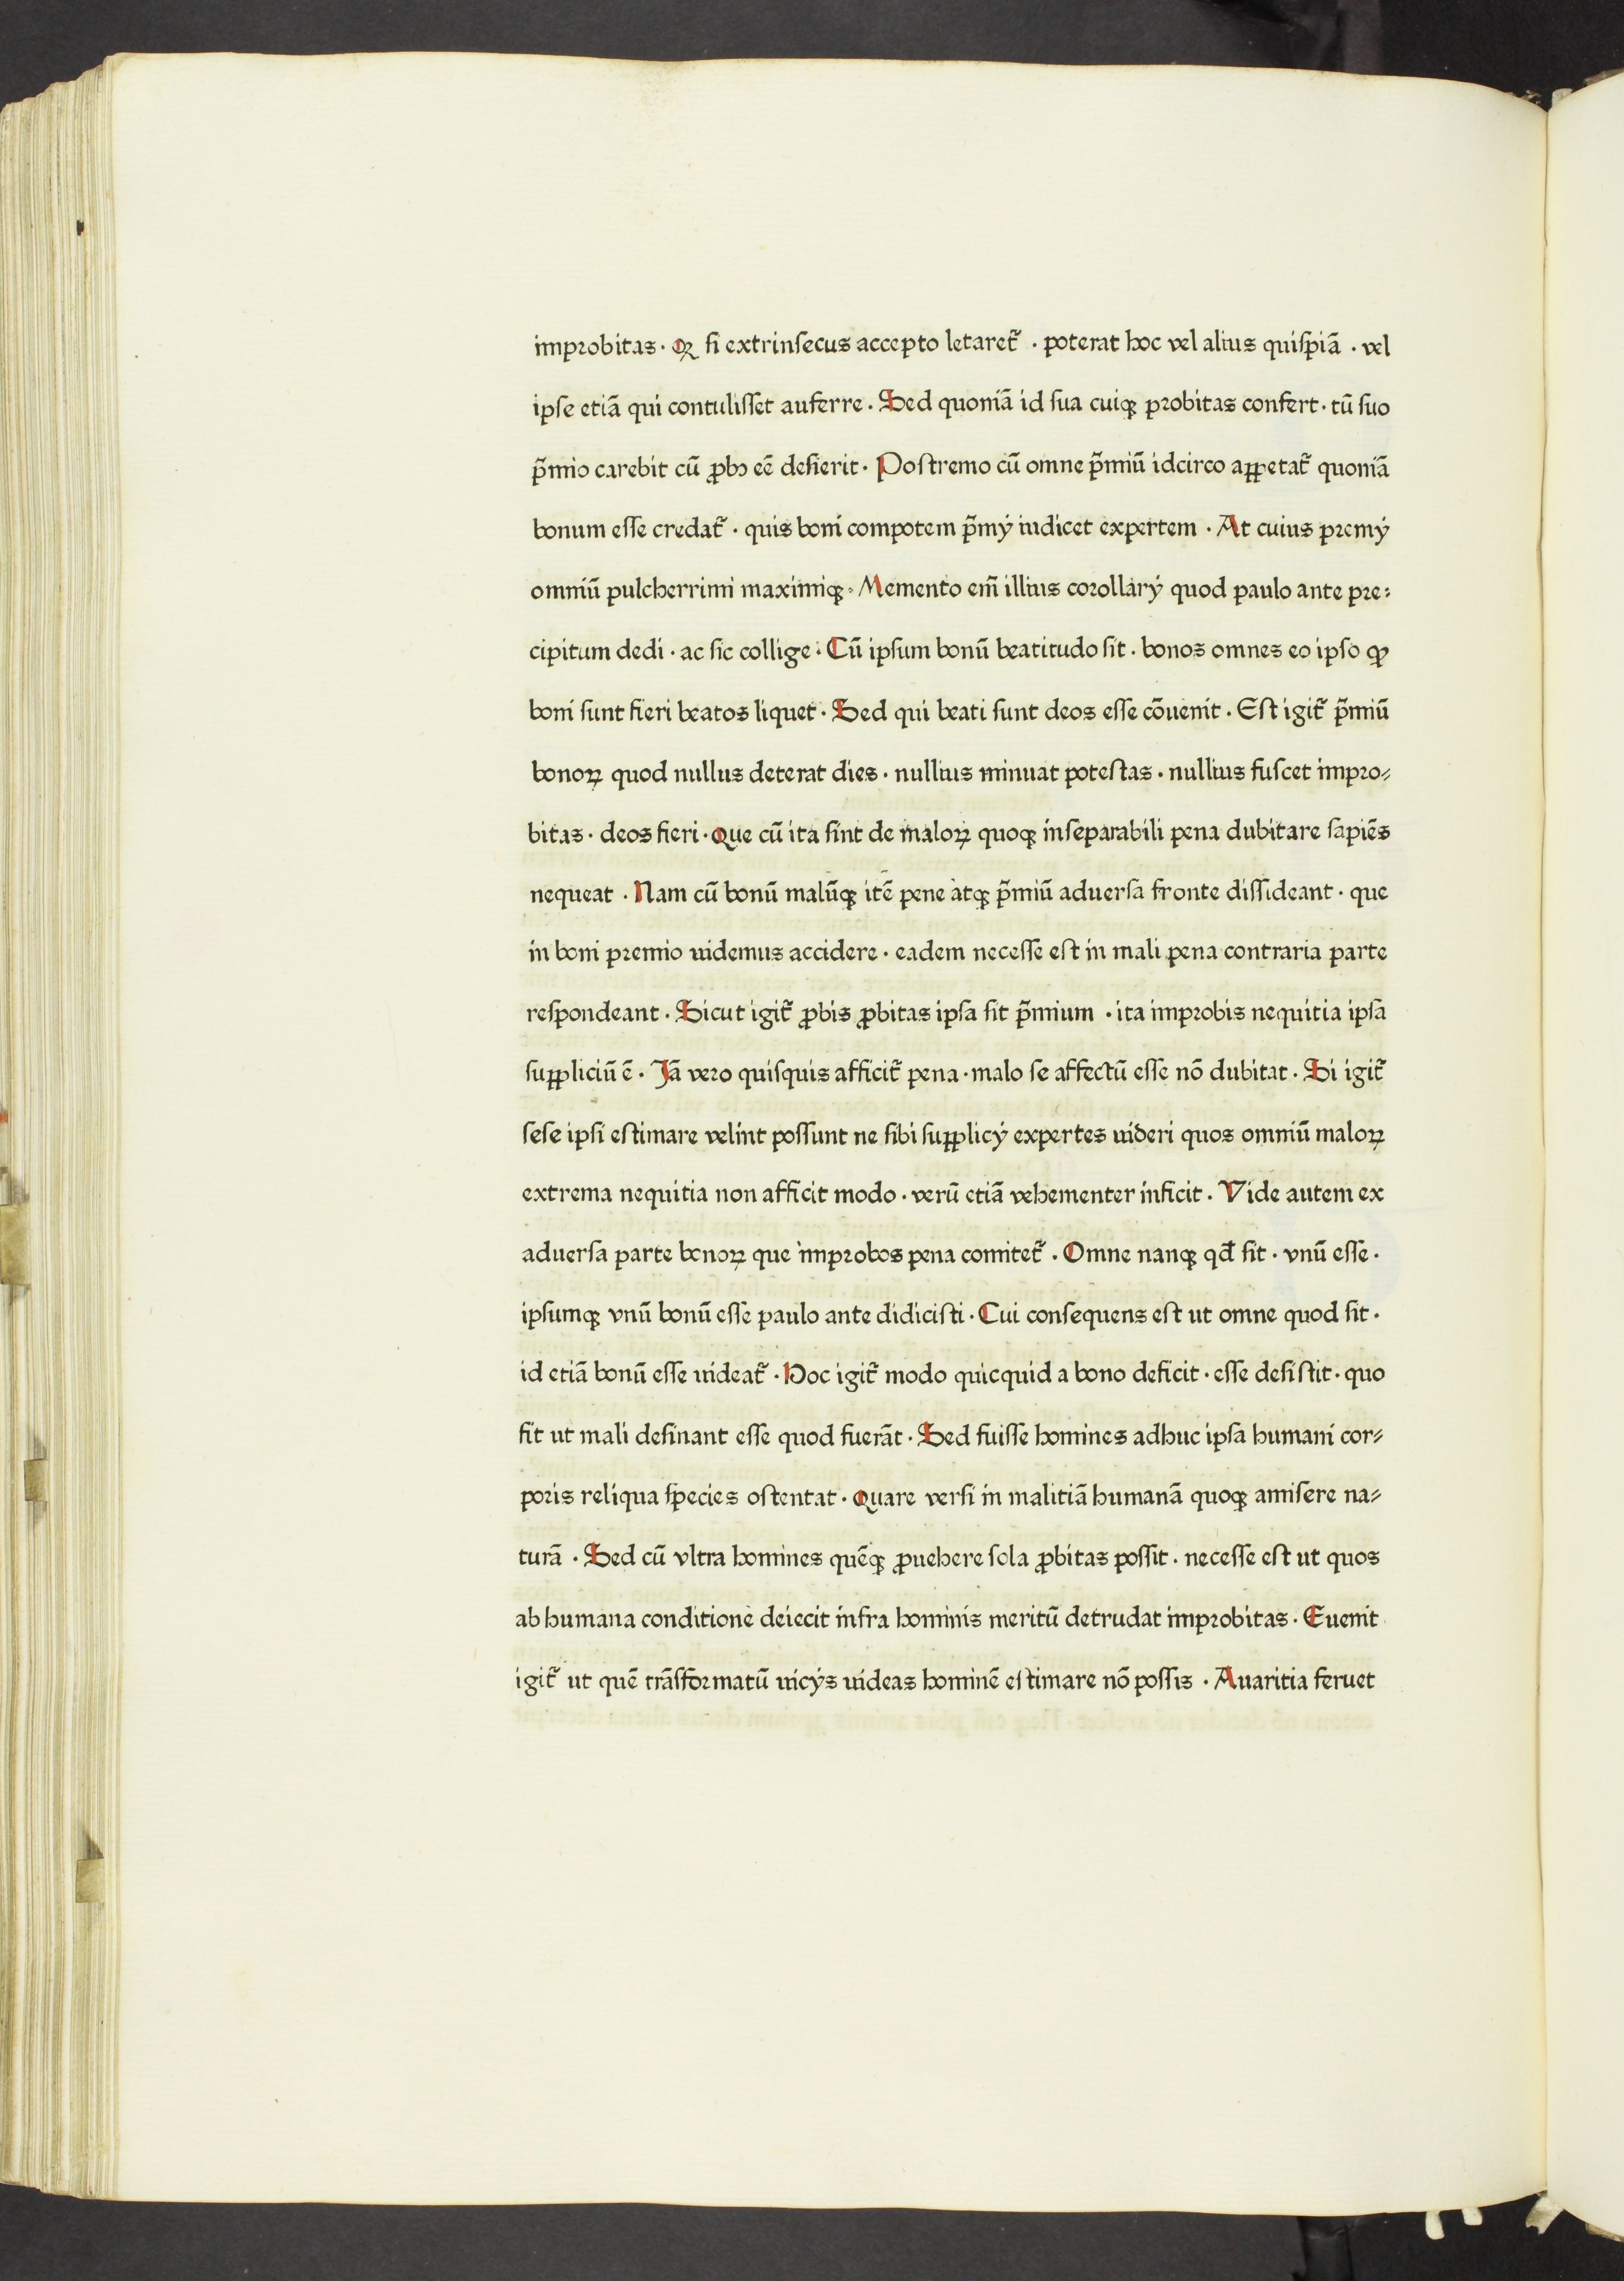 improbitas · Qꝫ ſi extrinſecus accepto letaret᷑ · poterat hoc vel alius quiſpiā · vel
ipſe etiā qui contuliſſet auferre · Sed quoniā id ſua cuiqꝫ probitas confert · tū ſuo
p̄mio carebit cū ꝓbꝰ eē deſierit · Poſtremo cū omne p̄miū idcirco appetat᷑ quoniā
bonum eſſe credat᷑ · quis boni compotem p̄mÿ iudicet expertem · At cuius premÿ
omniū pulcherrimi maximiqꝫ · Memento em̄ illius corollarÿ quod paulo ante pre⸗
cipitum dedi · ac ſic collige · Cū ipſum bonū beatitudo ſit · bonos omnes eo ipſo ꝙ
boni ſunt fieri beatos liquet · Sed qui beati ſunt deos eſſe cōuenit · Eſt igit᷑ p̄miū
bonoꝝ quod nullus deterat dies · nullius minuat poteſtas · nullius fuſcet impro⸗
bitas · deos fieri · Que cū ita ſint de maloꝝ quoqꝫ inſeparabili pena dubitare ſapiēs
nequeat · Nam cū bonū malūqꝫ itē pene atqꝫ p̄miū aduerſa fronte diſſideant · que
in boni premio uidemus accidere · eadem neceſſe eſt in mali pena contraria parte
reſpondeant · Sicut igit᷑ ꝓbis ꝓbitas ipſa fit p̄mium · ita improbis nequitia ipſa
ſuppliciū ē · Jā vero quiſquis afficit᷑ pena · malo ſe affectū eſſe nō dubitat · Si igit᷑
ſeſe ipſi eſtimare velint poſſunt ne ſibi ſupplicÿ expertes uideri quos omniū maloꝝ
extrema nequitia non afficit modo · verū etiā vehementer inficit · Vide autem ex
aduerſa parte bonoꝝ que improbos pena comitet᷑ · Omne nanqꝫ qd̄ ſit · vnū eſſe ·
ipſumqꝫ vnū bonū eſſe paulo ante didiciſti · Cui conſequens eſt ut omne quod ſit ·
id etiā bonū eſſe uideat᷑ · Hoc igit᷑ modo quicquid a bono deficit · eſſe deſiſtit · quo
fit ut mali deſinant eſſe quod fuerāt · Sed fuiſſe homines adhuc ipſa humani cor⸗
poris reliqua ſpecies oſtentat · Quare verſi in malitiā humanā quoqꝫ amiſere na⸗
turā · Sed cū vltra homines quēqꝫ ꝓuehere ſola ꝓbitas poſſit · neceſſe eſt ut quos
ab humana conditione deiecit infra hominis meritū detrudat improbitas · Euenit
igit᷑ ut quē trāsformatū uicÿs uideas hominē eſtimare nō poſſis · Auaritia feruet